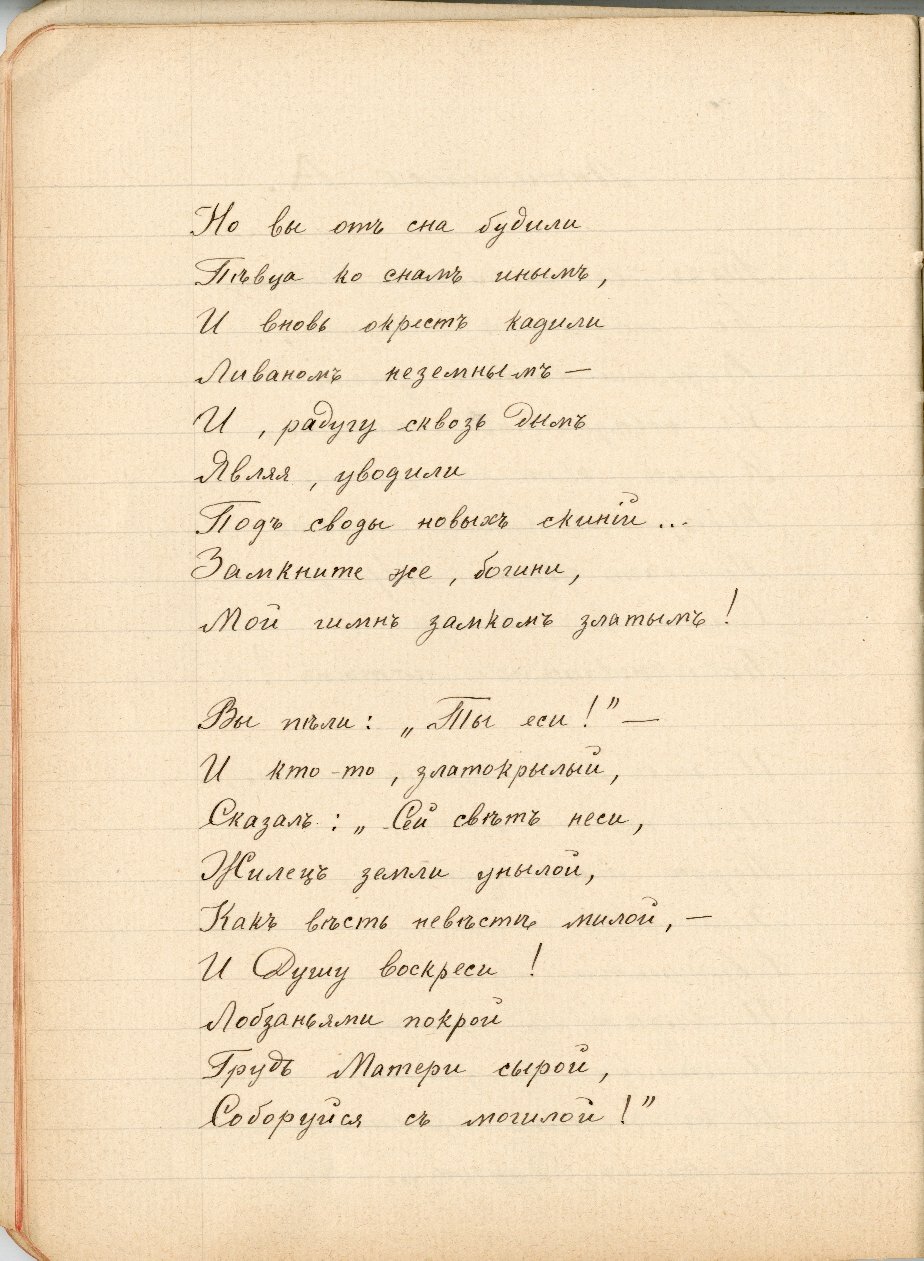 Но вы отъ сна будили
Пѣвца ко снамъ инымъ,
И вновь окрестъ кадили
Ливаномъ неземнымъ —
И, радугу сквозь дымъ
Являя, уводили
Подъ своды новыхъ скиній...
Замкните же, богини,
Мой гимнъ замкомъ златымъ!
Вы пѣли: „Ты еси!” —
И кто-то, златокрылый,
Сказалъ: „Сей свѣтъ неси,
Жилецъ земли унылой,
Какъ вѣсть невѣстѣ милой, —
И Душу воскреси!
Лобзаньями покрой
Грудь Матери сырой,
Соборуйся съ могилой!”